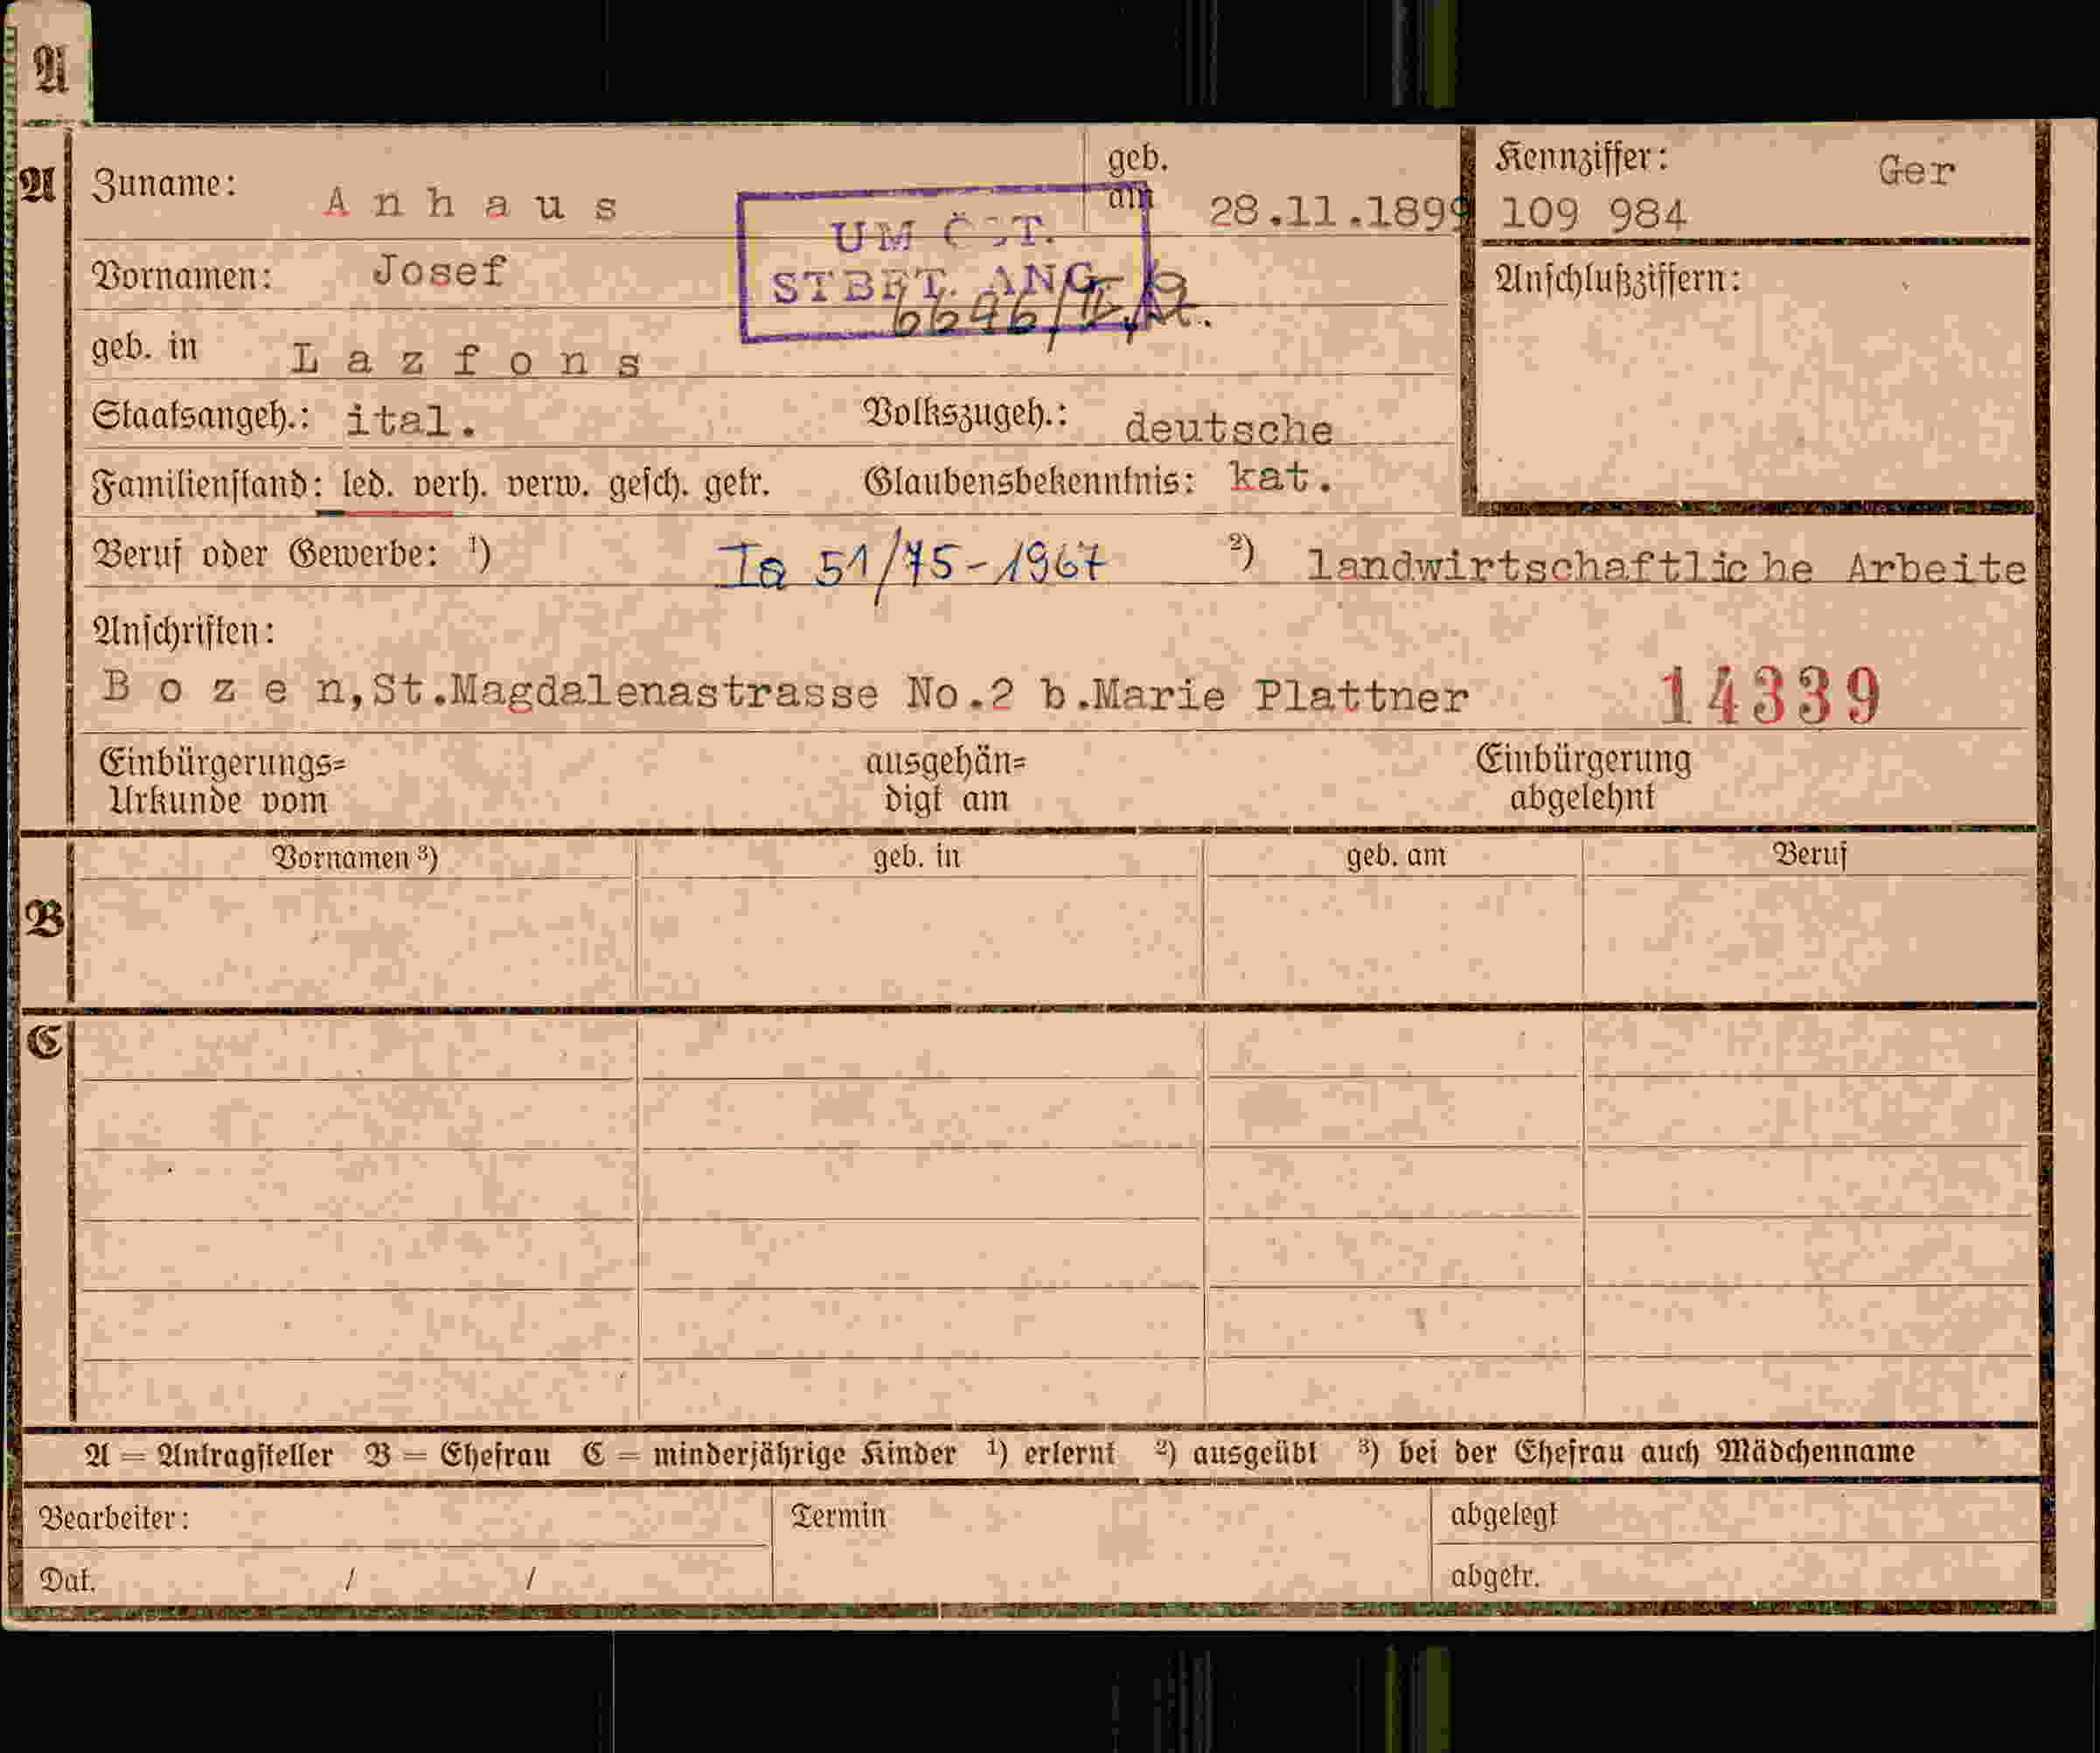 A
A
Zuname: Anhaus
geb. am 28.11.1899
Kennziffer: Ger
109 984
UM ÖST.
STBET. ANG.
Vornamen: Josef
Anschlußziffern:
geb. in Lazfons
Staatsangeh.: ital. Volkszugeh.: deutsche
Familienstand: led. verh. verw. gesch. getr. Glaubensbekenntnis: kat.
Beruf oder Gewerbe: ¹) Ia 51/75-1967 ²) landwirtschaftliche Arbeite
Anschriften:
Bozen,St.Magdalenastrasse No.2 b.Marie Plattner 14339
Einbürgerungs= ausgehän= Einbürgerung
Urkunde vom digt am abgelehnt
Vornamen ³) geb. in geb. am Beruf
B
C
A = Antragsteller B = Ehefrau C = minderjährige Kinder ¹) erlernt ²) ausgeübt ³) bei der Ehefrau auch Mädchenname
Bearbeiter: Termin abgelegt
Dat. / / abgetr.